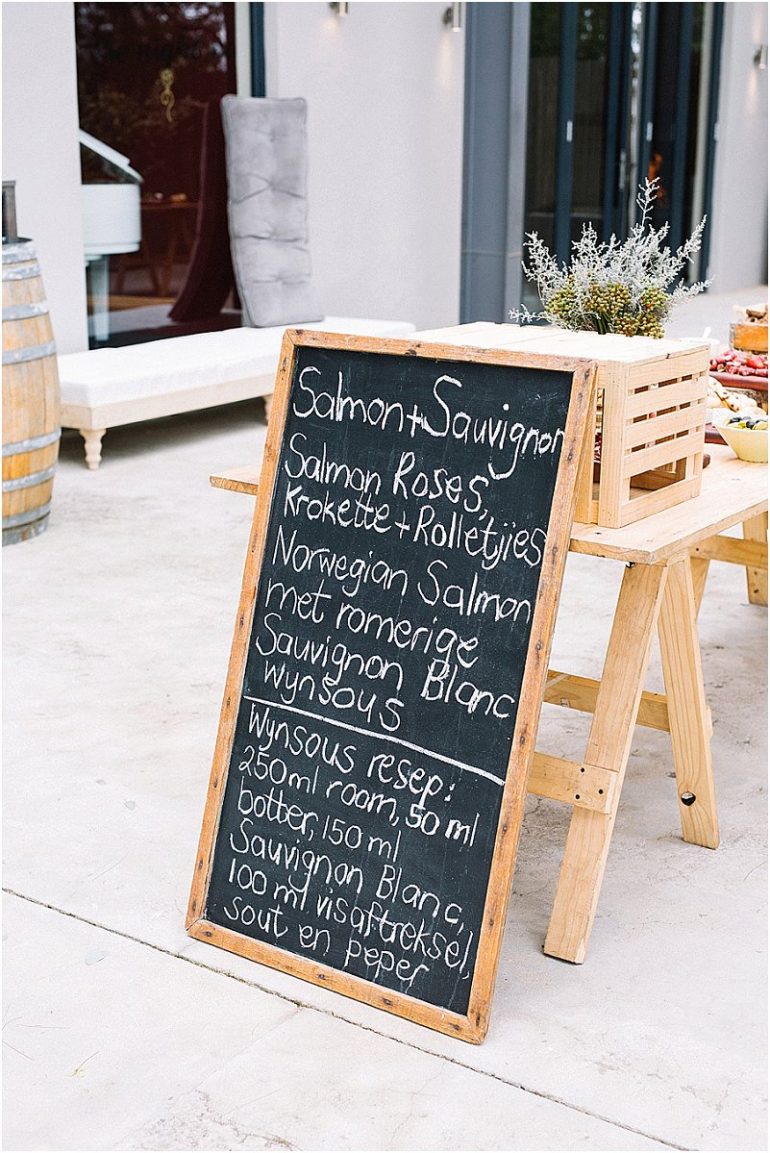 Salmon + Sauvignon
Salmon Roses,
Krokette + Rolletjies
Norwegian Salmon
met romerige
Sauvignon Blanc
wynsous
Wynsous resep:
250ml room, 50 ml
botter, 150 ml
Sauvignon Blanc,
100 ml visaftreksel,
sout en peper